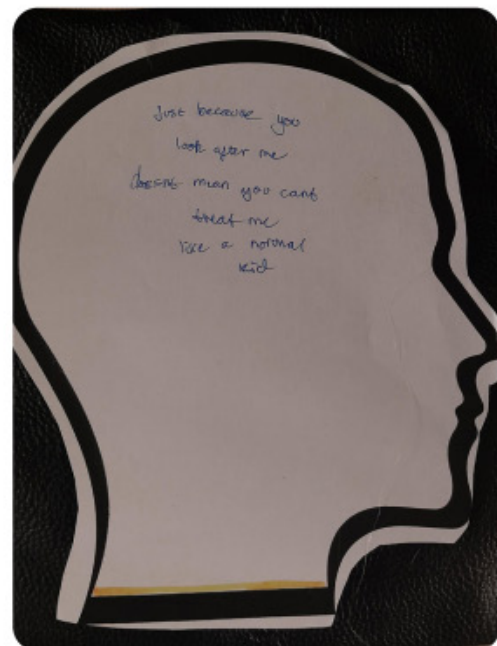 Just because you
look after me
doesnt mean you cant
treat me
like a normal
kid